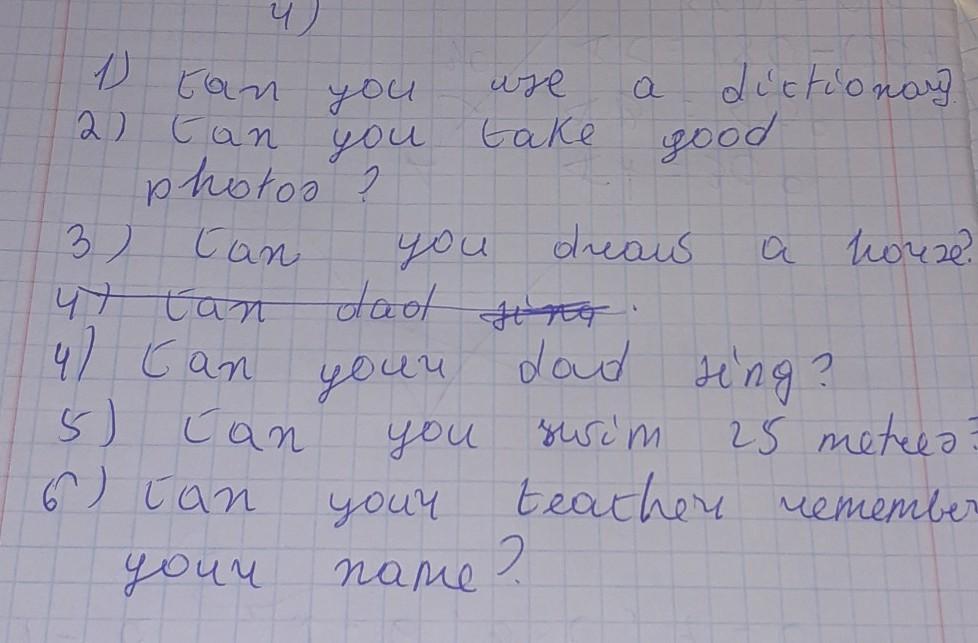 4)
1) Can you use a dictionary?
2) Can you take good
photos?
3) Can you draw a horse?
4) Can dad sing.
4) Can your dad sing?
5) Can you swim 25 metres?
6) Can your teacher remember
your name?